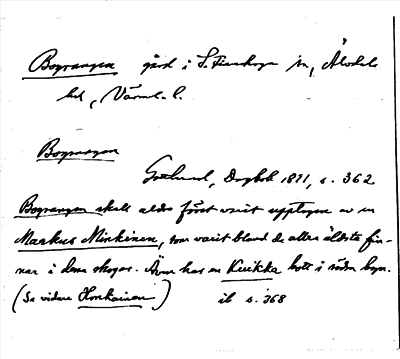 Bograngen gård i S. Finnskoga sn, Älvdals
hd, Värml. l.
Bograngen
Gottlund, Dagbok 1821, s. 362
Bograngen skall aldra först warit upptagen av en
Markus Minkinen, som warit bland de allra äldsta fin-
nar i dessa skogar. Även har en Kuikka bott i södra byn.
(Se vidare Honkainen)   ib s. 368